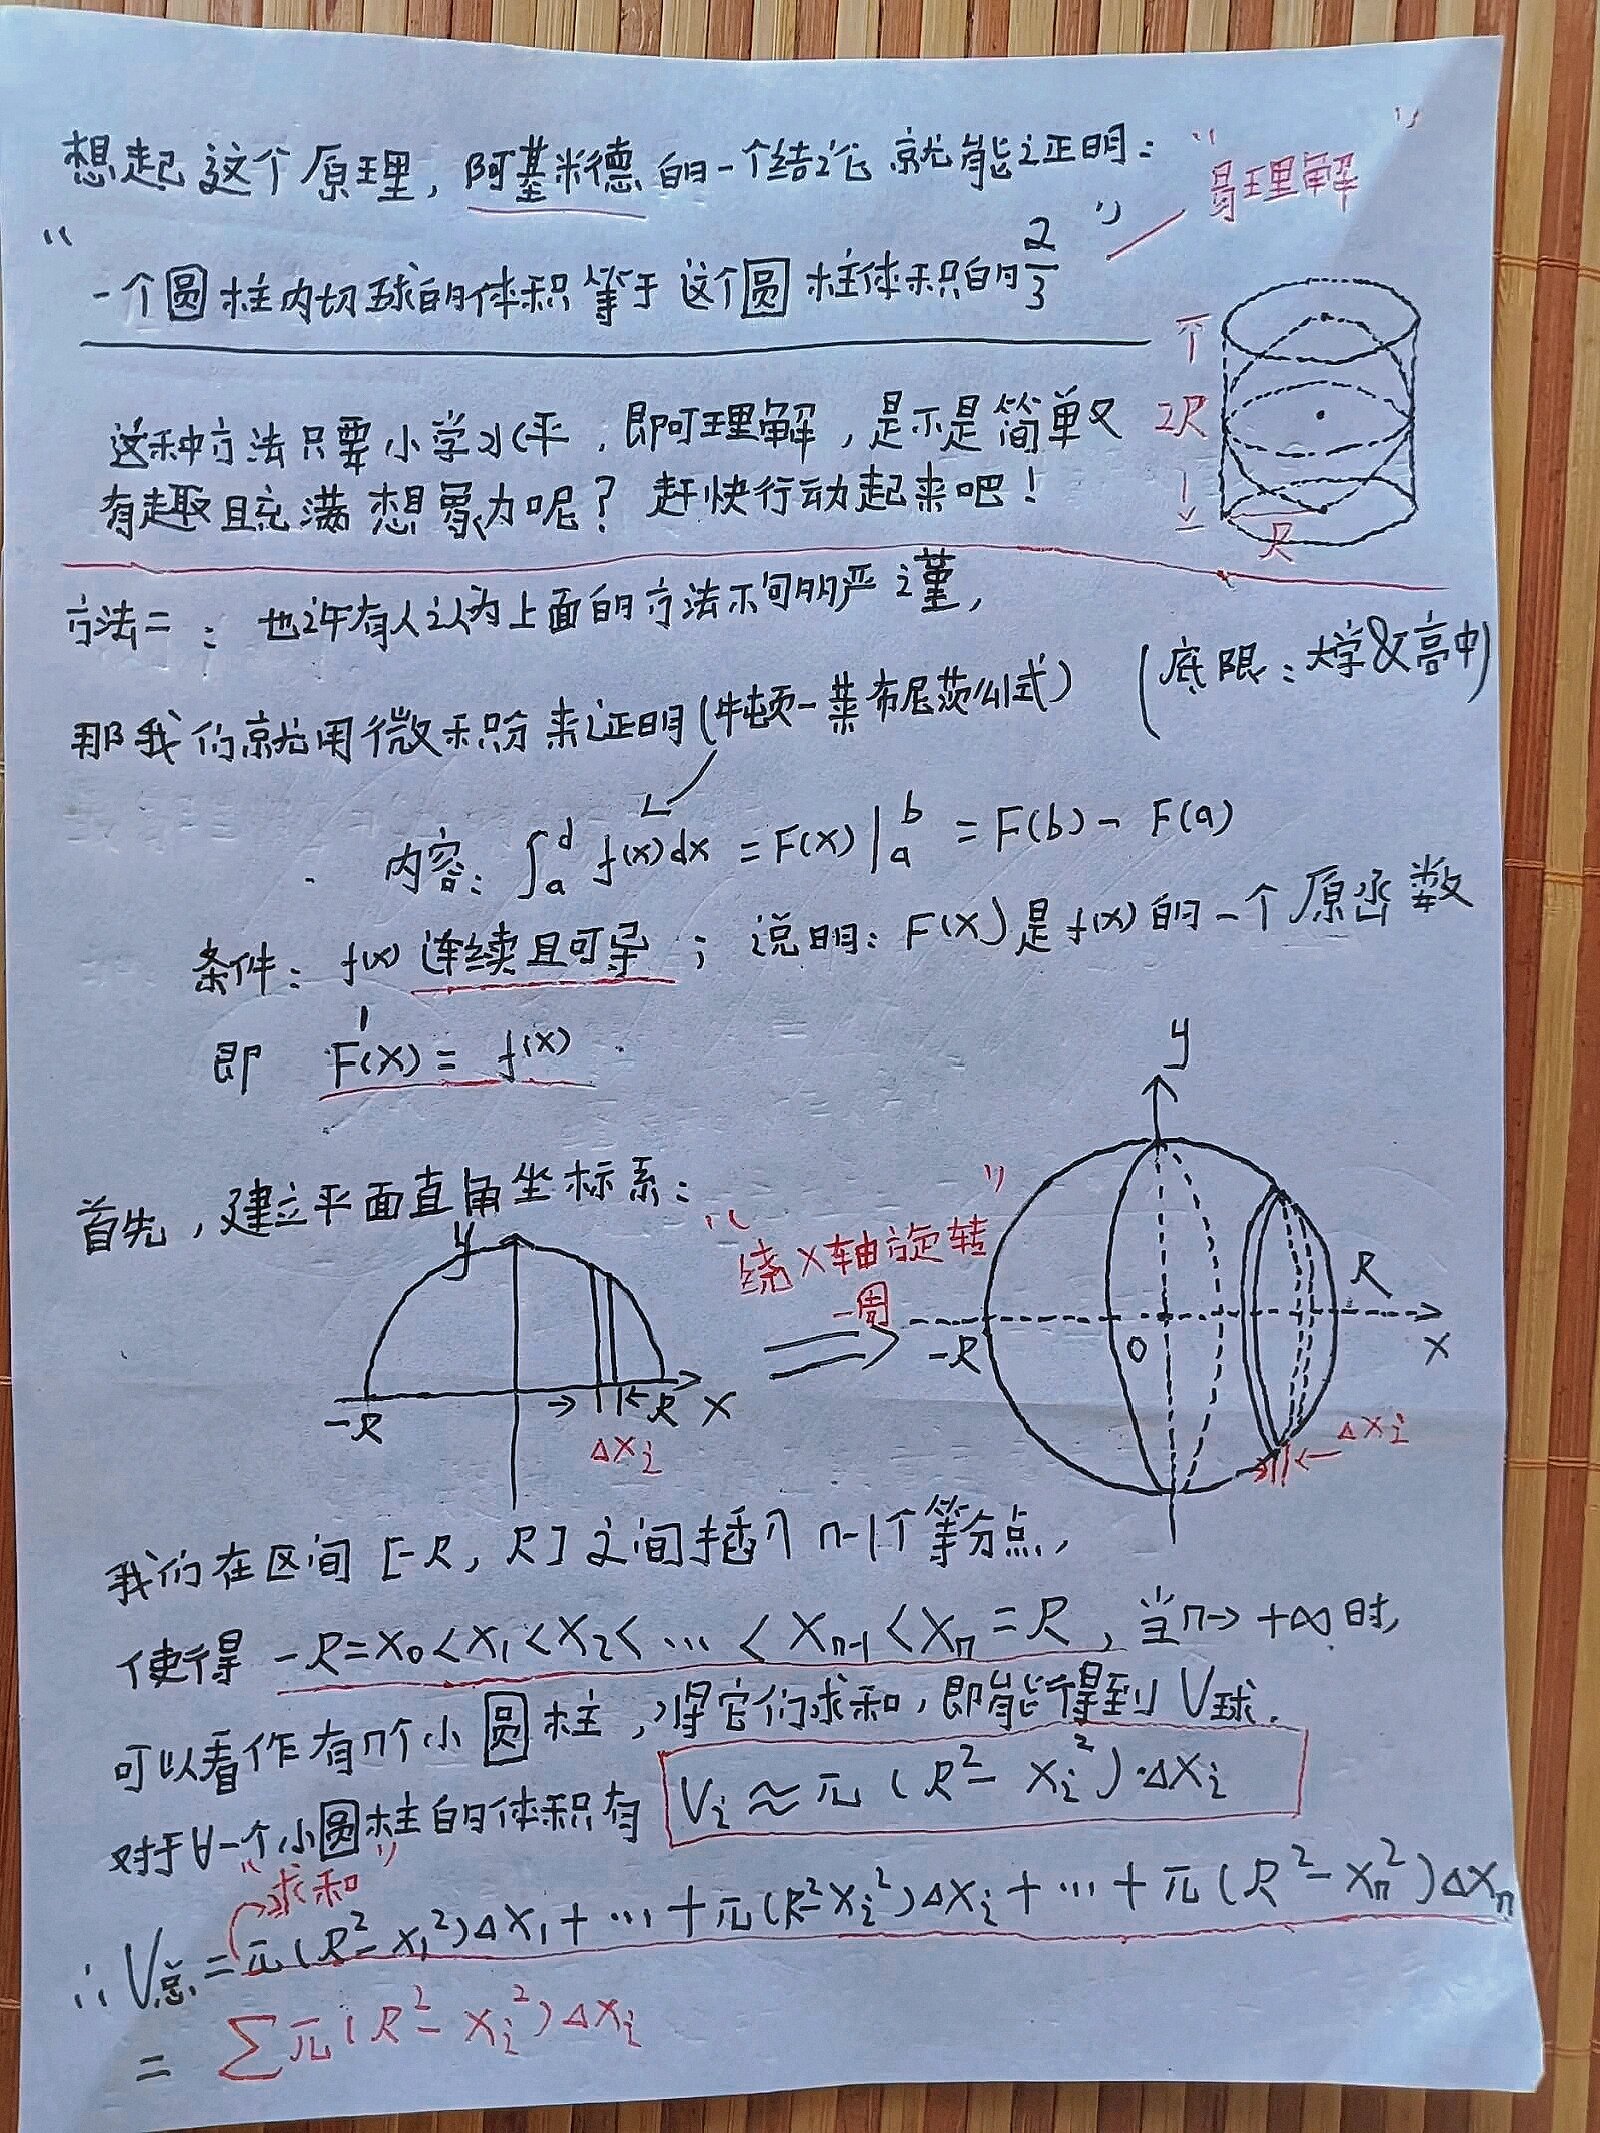 想起这个原理，阿基米德的一个结论就能证明：
“易理解”
“一个圆柱内切球的体积等于这个圆柱体积的2/3”
2R
R
这种方法只要小学水平，即可理解，是不是简单又
有趣且充满想象力呢？赶快行动起来吧！
方法二：也许有人认为上面的方法不够严谨，
那我们就用微积分来证明(牛顿-莱布尼茨公式)
(底限：大学&高中)
内容：∫ₐᵈ f(x)dx = F(X)|ₐᵇ = F(b) - F(a)
条件：f(x)连续且可导；说明：F(X)是f(x)的一个原函数
即 F'(X) = f(X).
首先，建立平面直角坐标系：
y
-R
R
X
ΔXᵢ
“绕X轴旋转
一周”
y
-R
O
R
X
ΔXᵢ
我们在区间[-R, R]之间插入n-1个等分点，
使得 -R=X₀<X₁<X₂<…<Xₙ₋₁<Xₙ=R，当n→+∞时，
可以看作有n个小圆柱，将它们求和，即能得到V球.
对于∀一个小圆柱的体积有 Vᵢ≈π(R²-Xᵢ²)·ΔXᵢ
“求和”
∴V总=π(R²-X₁²)ΔX₁+…+π(R²-Xᵢ²)ΔXᵢ+…+π(R²-Xₙ²)ΔXₙ
= ∑π(R²-Xᵢ²)ΔXᵢ